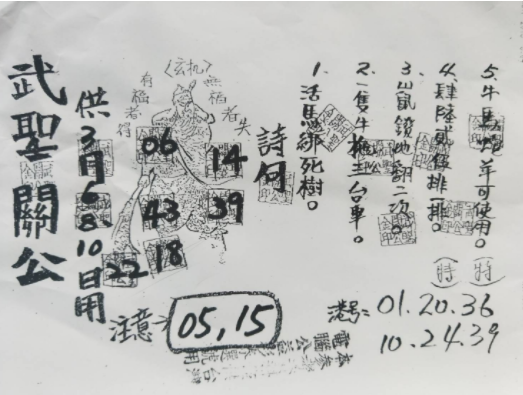 武聖關公
供3月6 8 10日用
〈玄机〉
有福者得
無福者失
06
14
43
39
22 18
詩句
1. 活馬綁死樹。
2. 一隻牛拖三台車。
3. 鼠鏡地翻二次。
4. 肆陸貳叁排一排。
5. 牛馬 羊可使用。
(特)
(特)
注意
05,15
港号: 01.20.36
10.24.39